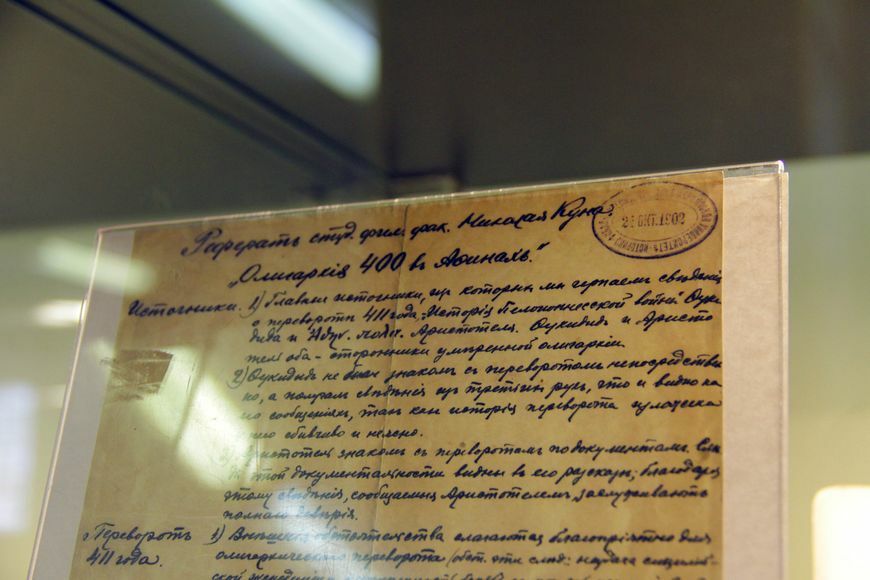 Рефератъ студ. филол. фак. Николая Куна.
24 ОКТ. 1902
„Олигархія 400 въ Аѳинахъ."
Источники. 1) Главные источники, изъ которыхъ мы черпаемъ свѣдѣнія
о переворотѣ 411 года, Исторія Пелопоннесской войны Ѳуки-
дида и Ἀθην. πολιτ. Аристотеля. Ѳукидидъ и Аристо-
тель оба - сторонники умѣренной олигархіи.
2) Ѳукидидъ не былъ знакомъ съ переворотомъ непосредствен-
но, а получалъ свѣдѣнія изъ третьихъ рукъ, это и видно на
его сообщеніяхъ, такъ какъ исторія переворота
сбивчиво и неясно.
3) Аристотель знакомъ съ переворотомъ по документамъ.
этой документальности видны въ его разсказѣ; благодаря
этому свѣдѣнія, сообщаемыя Аристотелемъ, заслуживаютъ
полнаго довѣрія.
Переворотъ 1) Внѣшнія обстоятельства слагаются благопріятно для
411 года. олигархическаго переворота (обст. эти слѣд: неудача сицилій-
ской